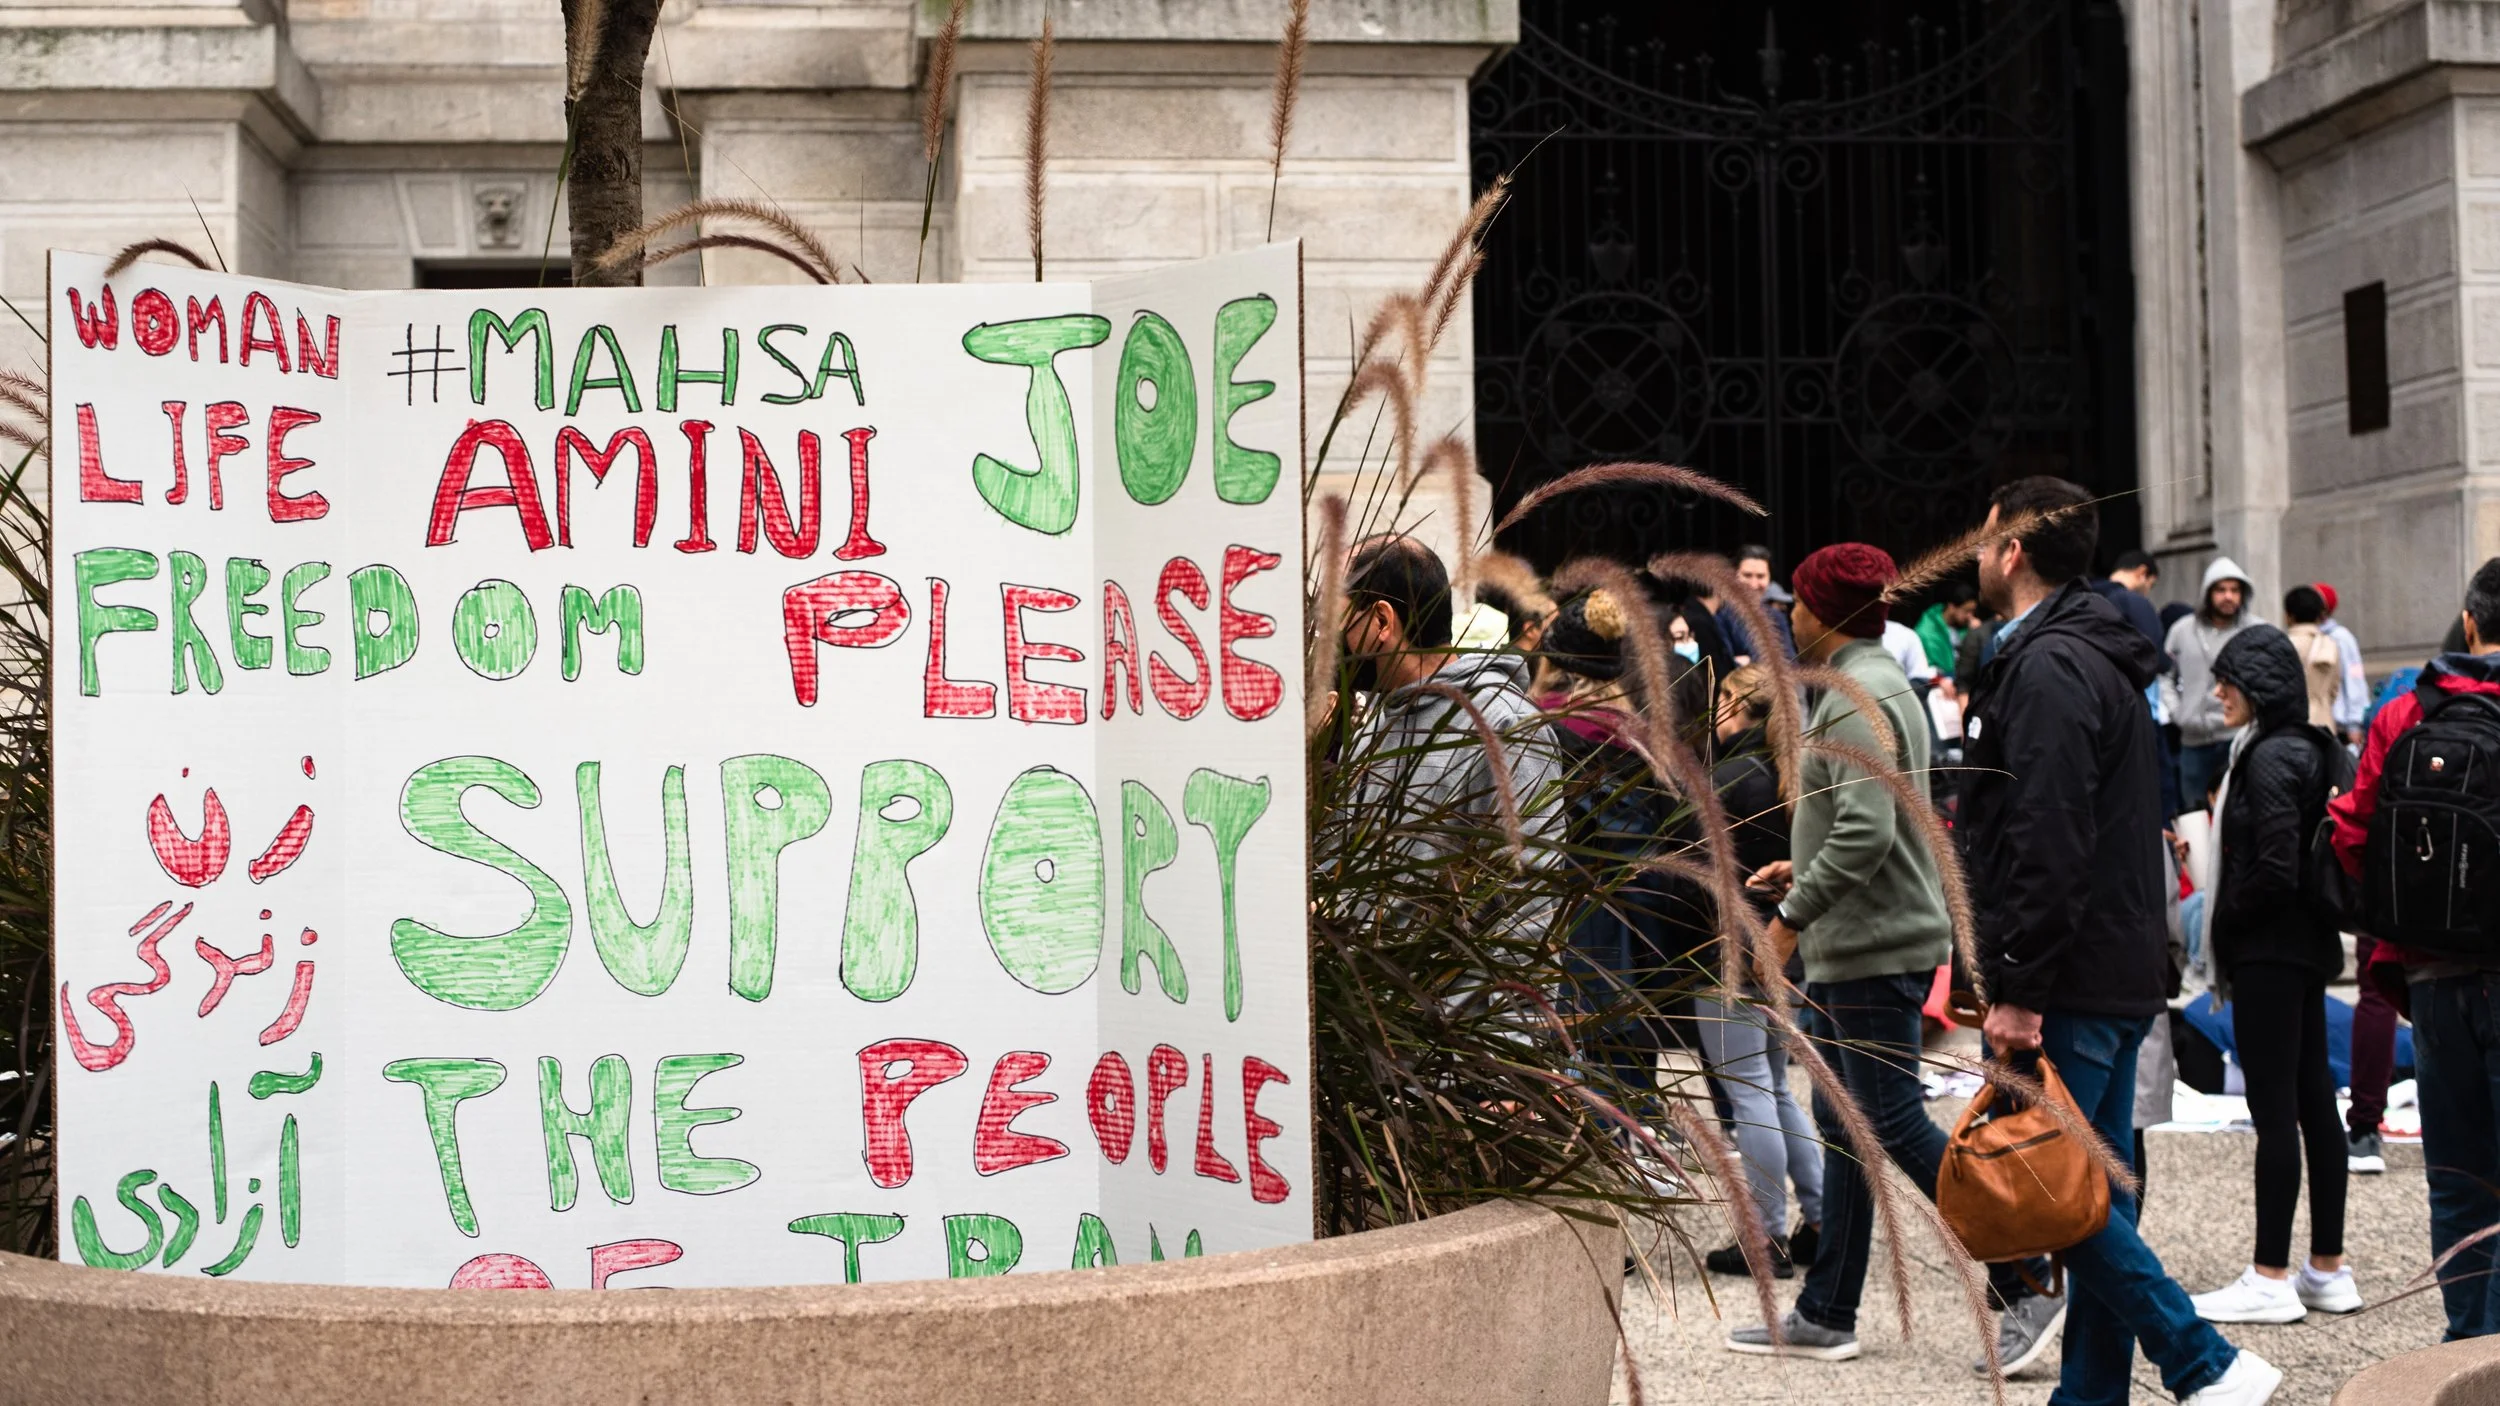 WOMAN
LIFE
FREEDOM
زن
زندگی
آزادی
#MAHSA
AMINI
JOE
PLEASE
SUPPORT
THE PEOPLE
OF IRAN